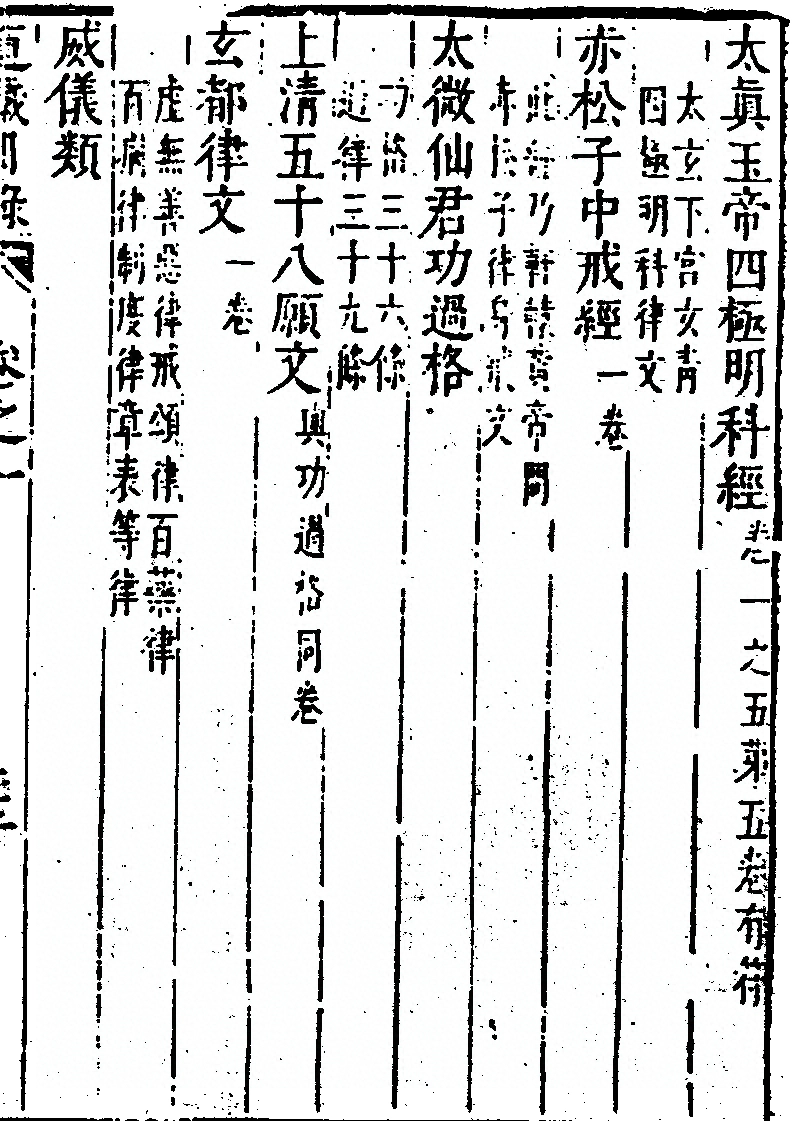 太眞玉帝四極明科經卷一之五第五卷有符
太玄下宮女青
四極明科律文
赤松子中戒經一卷
此 軒轅黃帝問
赤 子律 戒文
太微仙君功過格
功格三十六條
過律三十九條
上清五十八願文與功過格同卷
玄都律文一卷
虛無善惡律戒頌律百藥律
百病律制度律章表等律
威儀類
道藏目錄 卷之一